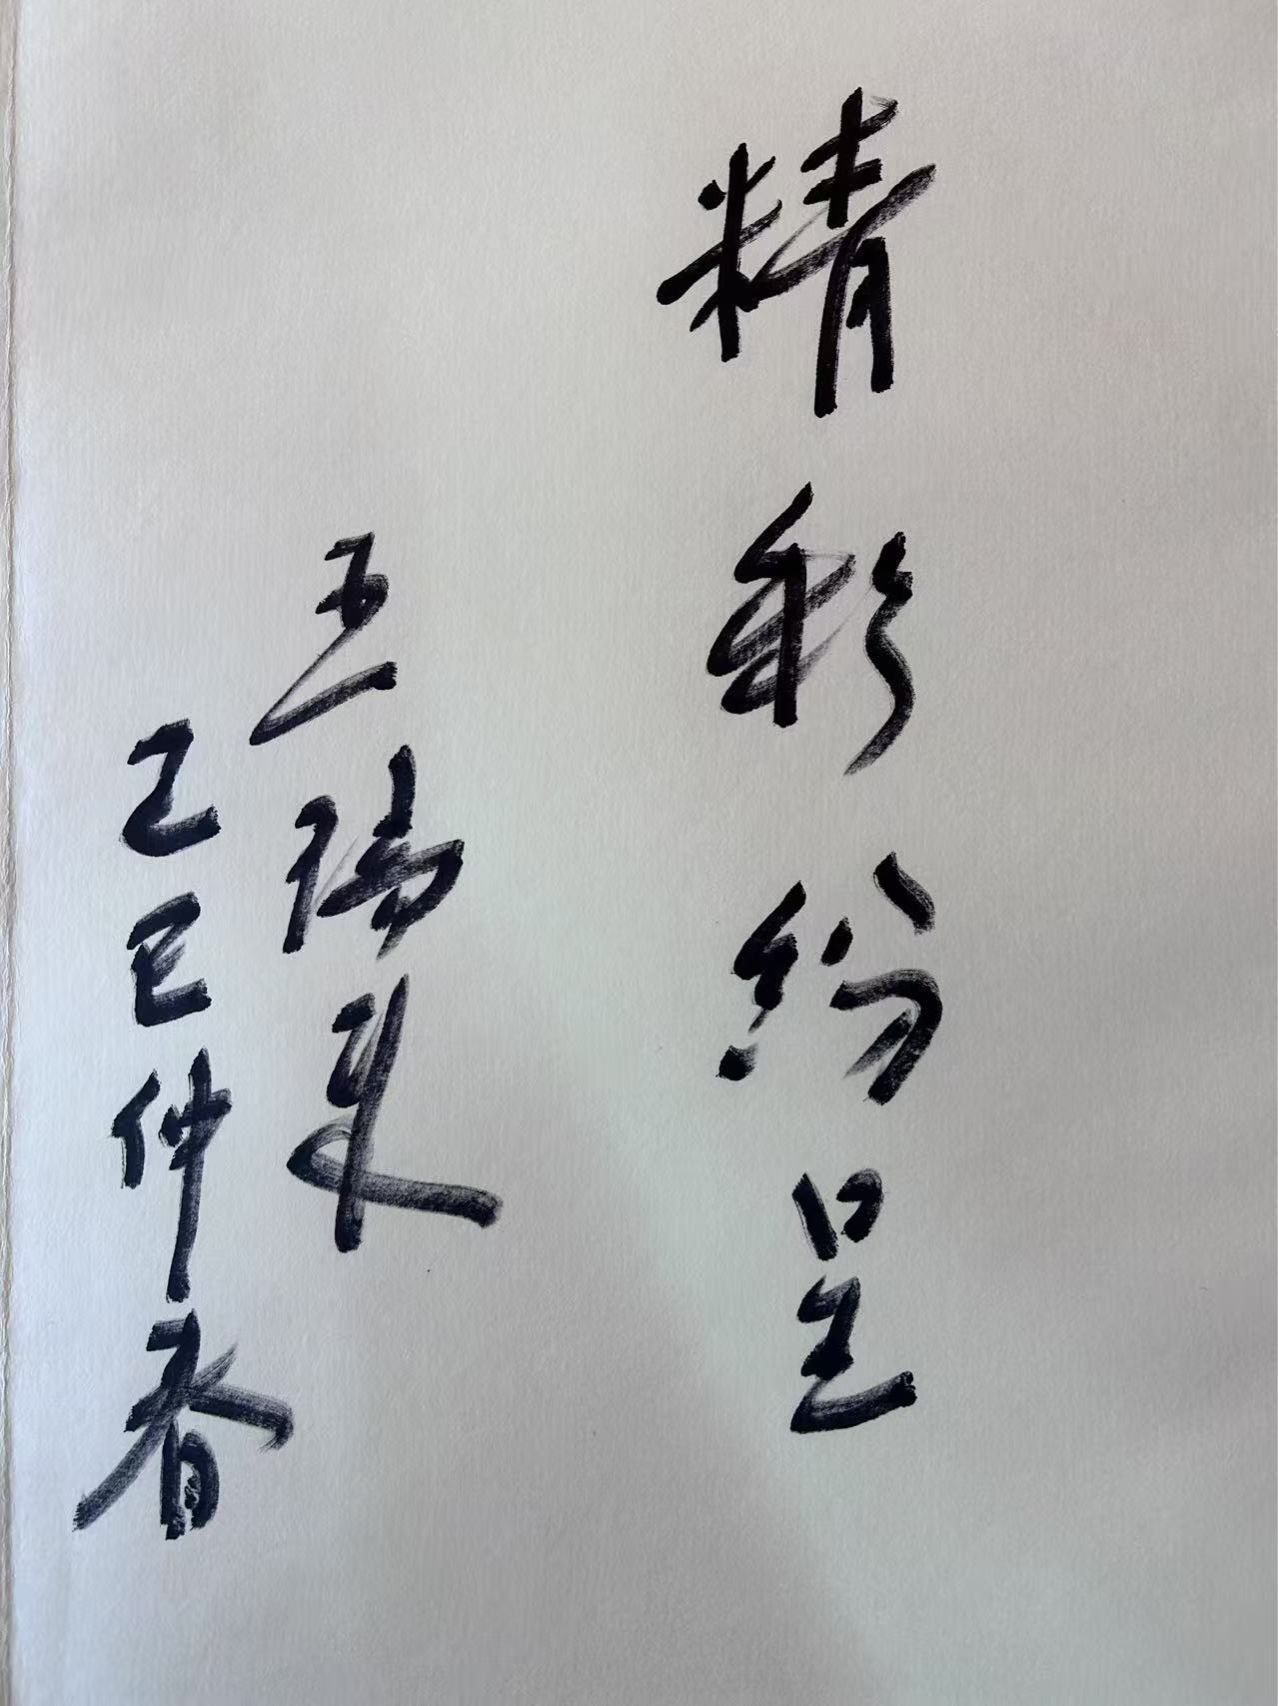 精彩纷呈
王瑞来
乙巳仲春